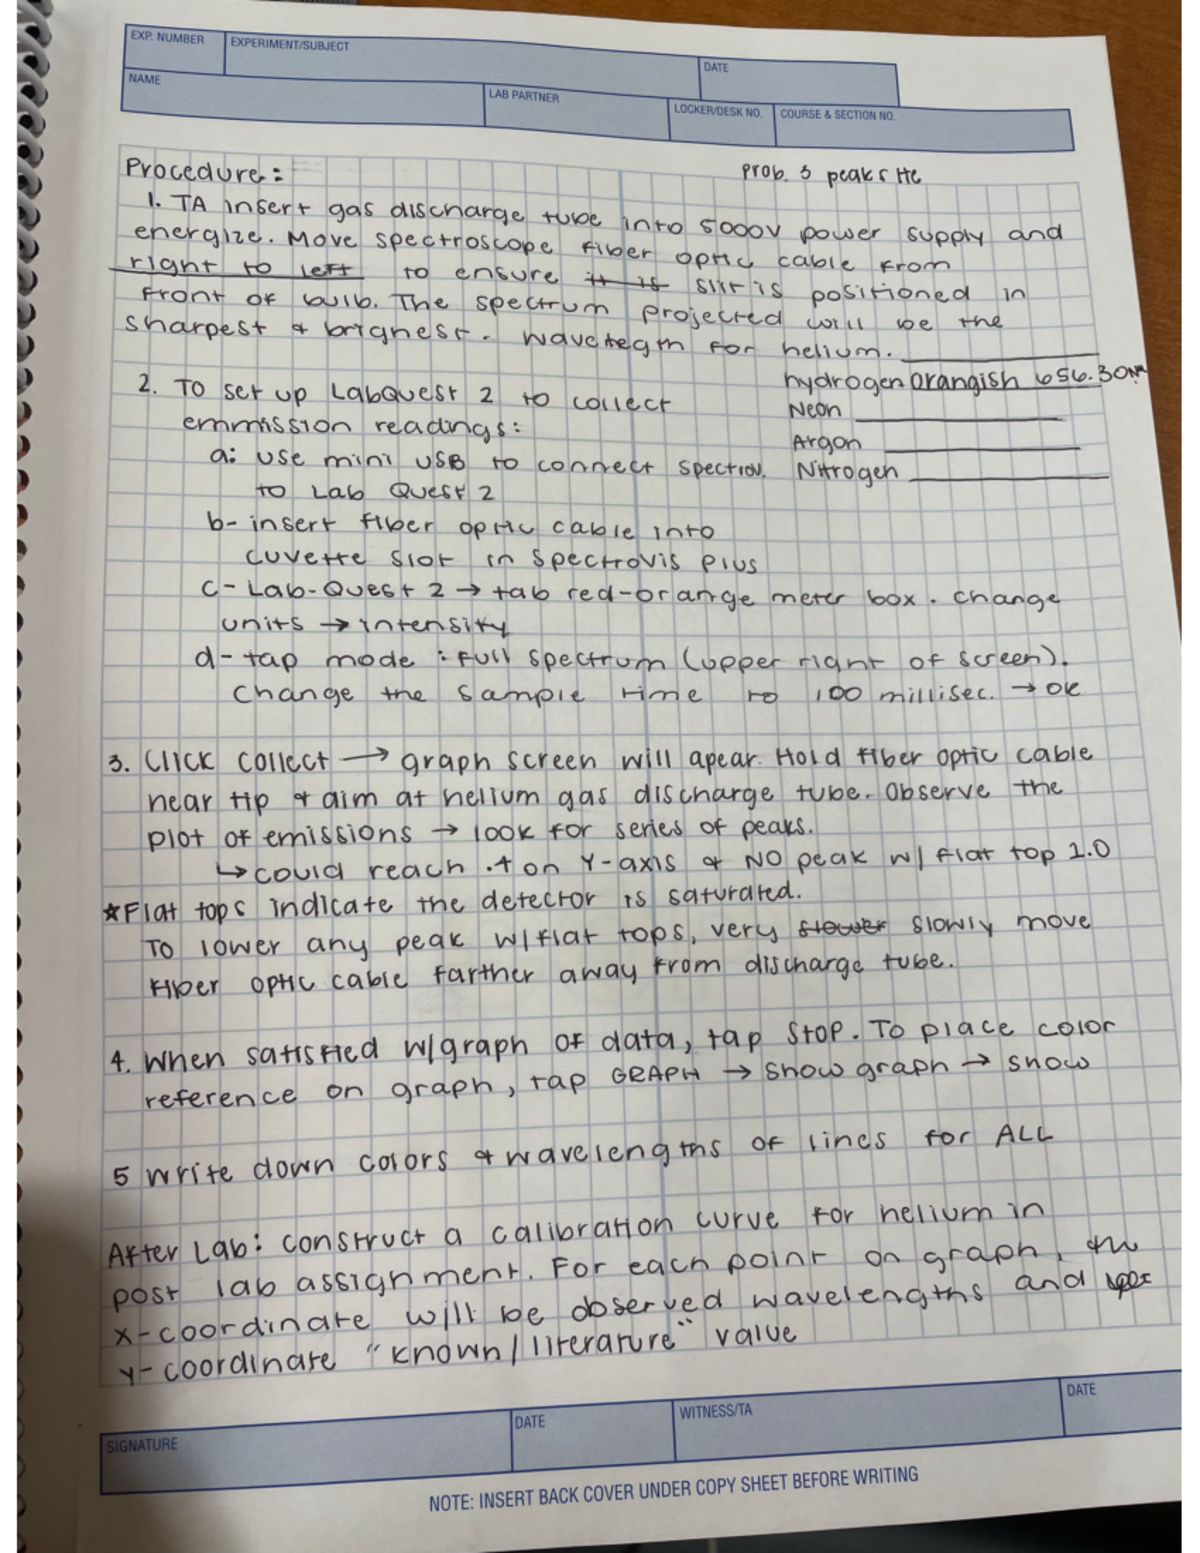 EXP. NUMBER
EXPERIMENT/SUBJECT
DATE
NAME
LAB PARTNER
LOCKER/DESK NO.
COURSE & SECTION NO.
Procedure:
prob. 3 peaks He
1. TA insert gas discharge tube into 5000V power supply and
energize. Move spectroscope fiber optic cable from
right to left to ensure it is slit is positioned in
front of bulb. The spectrum projected will be the
sharpest & brighest. wavelegth for helium.
hydrogen orangish 656.30nm
2. To set up LabQuest 2 to collect
Neon
emmission readings:
Argon
a: use mini USB to connect spectrov. Nitrogen
to Lab Quest 2
b- insert fiber optic cable into
cuvette slot in SpectroVis Plus
c- Lab-Quest 2 → tab red-orange meter box. change
units → intensity
d- tap mode : full spectrum (upper right of screen).
change the sample time to 100 millisec. → ok
3. Click collect → graph screen will apear. Hold fiber optic cable
near tip & aim at helium gas discharge tube. Observe the
plot of emissions → look for series of peaks.
↳ could reach .4 on Y-axis & NO peak w/ flat top 1.0
*Flat tops indicate the detector is saturated.
To lower any peak w/flat tops, very slower slowly move
fiber optic cable farther away from discharge tube.
4. When satisfied w/graph of data, tap Stop. To place color
reference on graph, tap GRAPH → show graph → show
5 write down colors & wavelengths of lines for ALL
After Lab: construct a calibration curve for helium in
post lab assignment. For each point on graph, the
x-coordinate will be observed wavelengths and
y-coordinate "known/literature" value
SIGNATURE
DATE
WITNESS/TA
DATE
NOTE: INSERT BACK COVER UNDER COPY SHEET BEFORE WRITING